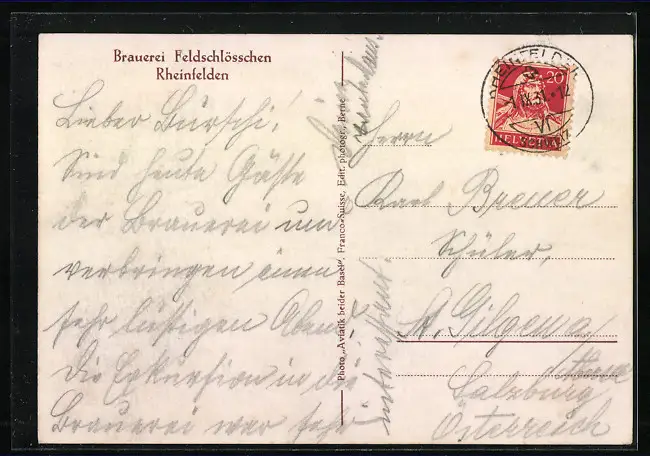 Brauerei Feldschlösschen
Rheinfelden
Lieber Burschi!
Sind heute Gäste
der Brauerei und
verbringen einen
sehr lustigen Abend!
Die Exkursion in die
Brauerei war sehr
interessant.
Photo „Aviatik beider Basel“, Franco-Suisse, Edit. photogr., Berne
RHEINFELDEN
20
HELVETIA
Herrn
Karl Breuer
Schüler,
St. Gilgen
Salzburg
Österreich